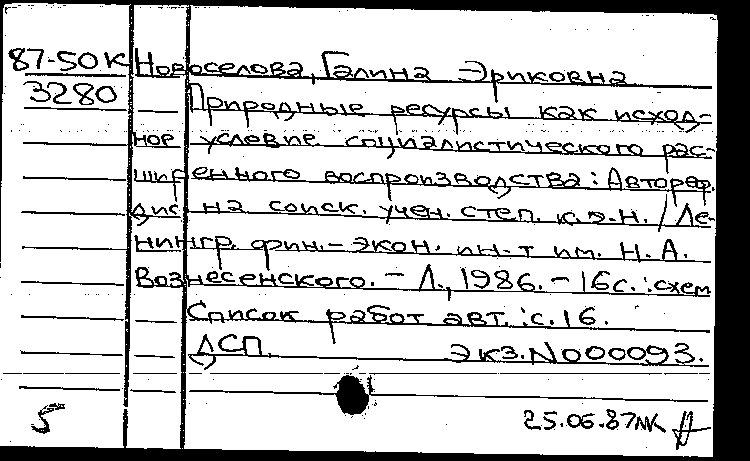 87-50К Новоселова, Галина Эриковна
3280 Природные ресурсы как исход-
ное условие социалистического рас-
ширенного воспроизводства: Автореф.
дис. на соиск. учен. степ. к.э.н. / Ле-
нингр. фин.-экон. ин-т им. Н.А.
Вознесенского. - Л., 1986. - 16с. :схем
Список работ авт.:с.16.
ДСП. экз.N000093.
5 25.06.87